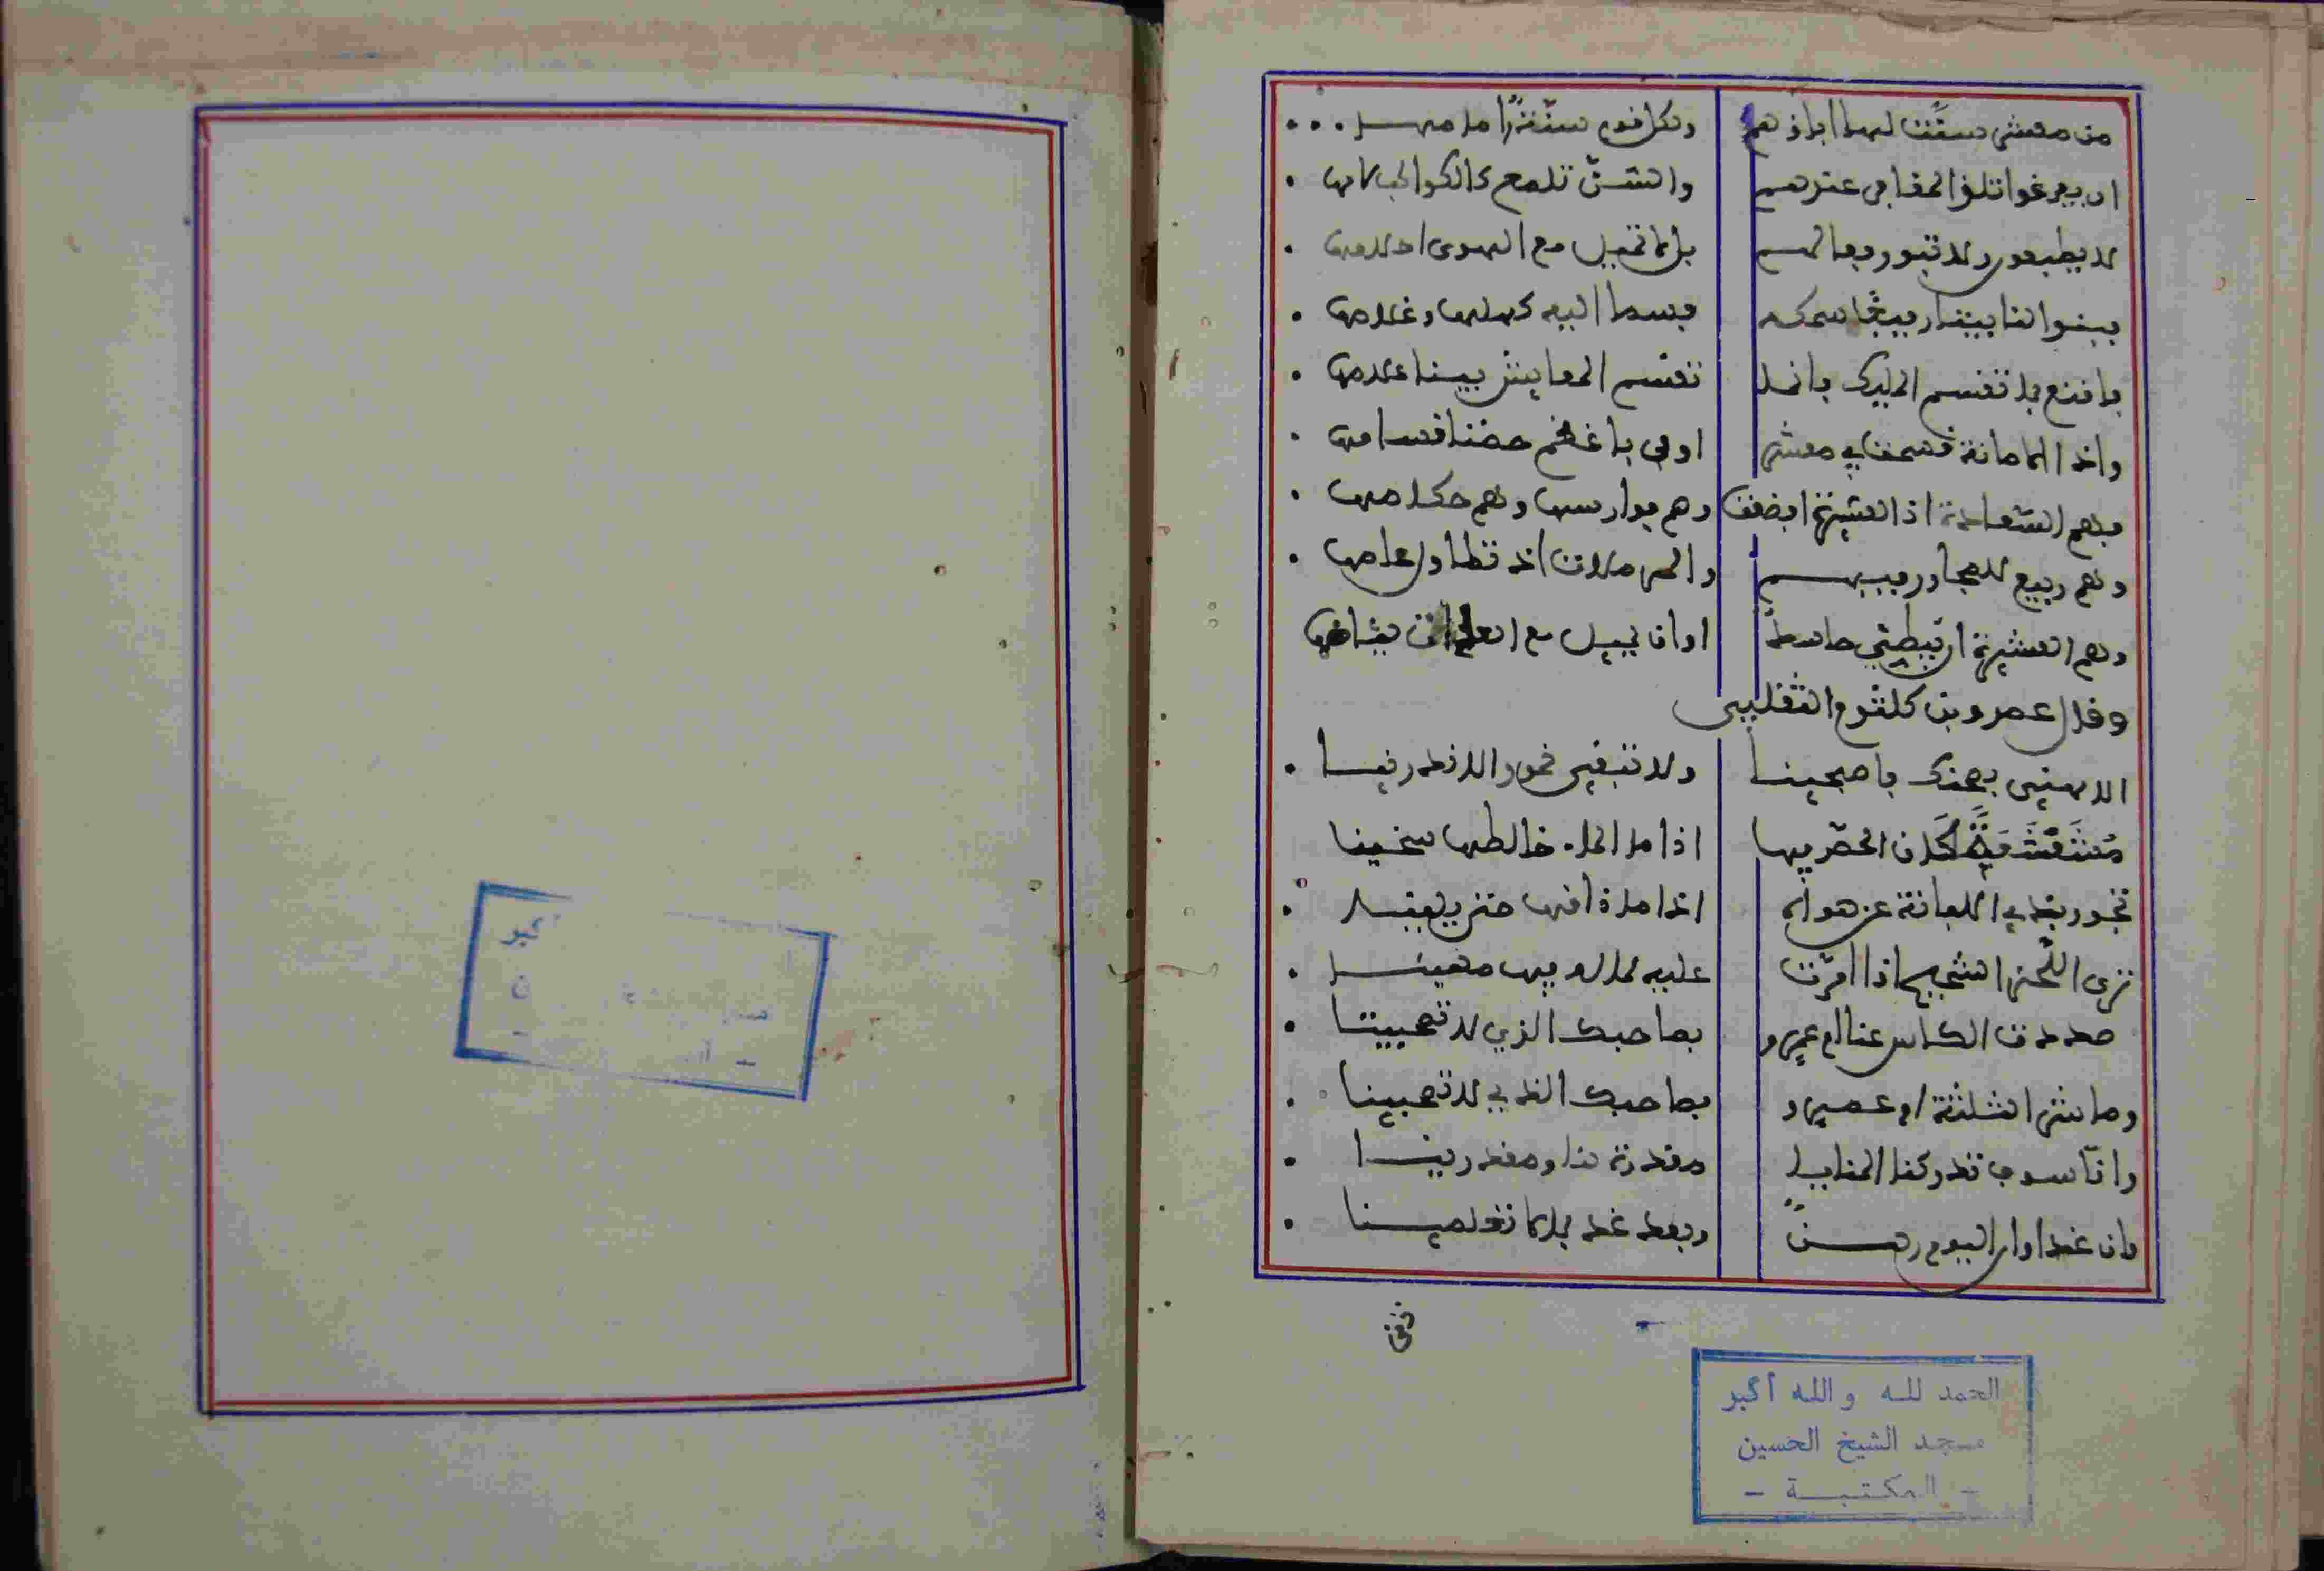 من معشر سنّت لهم اباؤهم ولكل قوم سنّةٌ وامامها
ان يفزعوا تلق المغافر عندهم والسّنّ تلمع كالكواكب لامها
لا يطبعون ولا تبور فعالهم بل لا تميل مع الهوى احلامها
فبنوا لنا بيتا رفيعًا سمكه فسما اليه كهلها وغلامها
فاقنع بما قسم المليك فانما قسم المعايش بيننا علامها
واذا الامانة قسمت في معشر اوفى باعظم حظنا قسامها
فهم السعاة اذا العشيرة افظعت وهم فوارسها وهم حكامها
وهم ربيع للمجاور فيهم والمرملات اذا تطاول عامها
وهم العشيرة ان يبطئ حاسد او ان يميل مع العدا
وقال عمرو بن كلثوم التغلبي
الا هبي بصحنك فاصبحينا ولا تبقي خمور الاندرينا
مُشَعْشَعَةً كَان الحصّ فيها اذا ما الماء خالطها سخينا
تجور بذي اللبانة عن هواه اذا ما ذاقها حتى يلينا
ترى اللّحز الشحيح اذا امرّت عليه لماله فيها مهينا
صددت الكاس عنا ام عمرو بصاحبك الذي لا تصبحينا
وما شر الثلثة ام عمرو بصاحبك الذي لا تصبحينا
وانّا سوف تدركنا المنايا مقدرة لنا ومقدرينا
وان غدا وان اليوم رهنٌ وبعد غد بما لا تعلمينا
الحمد لله والله أكبر
مسجد الشيخ الحسين
- المكتبة -